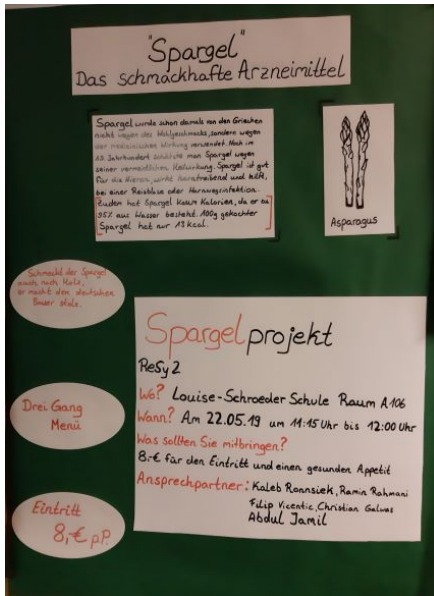 "Spargel"
Das schmackhafte Arzneimittel
Spargel wurde schon damals von den Griechen
nicht wegen des Wohlgeschmacks, sondern wegen
der medizinischen Wirkung verwendet. Noch im
Jahrhundert schätzte man Spargel wegen
seiner vermeintlichen Heilwirkung. Spargel ist gut
für die Nieren, wirkt harntreibend und hilft,
bei einer Reizblase oder Harnwegsinfektion.
Zudem hat Spargel kaum Kalorien, da er zu
95% aus Wasser besteht. 100g gekochter
Spargel hat nur 13 kcal.
Asparagus
Schmeckt der Spargel
nach Holz,
er macht den deutschen
Bauer stolz.
Spargelprojekt
ReSy 2
Wo? Louise-Schroeder Schule Raum A106
Wann? Am 22.05.19 um 11:15 Uhr bis 12:00 Uhr
Was sollten Sie mitbringen?
8.-€ für den Eintritt und einen gesunden Appetit
Ansprechpartner: Kaleb Ronnsiek, Ramin Rahmani
Filip Vicentic, Christian Galwas
Abdul Jamil
Drei Gang
Menü
Eintritt
8,-€ p.P.